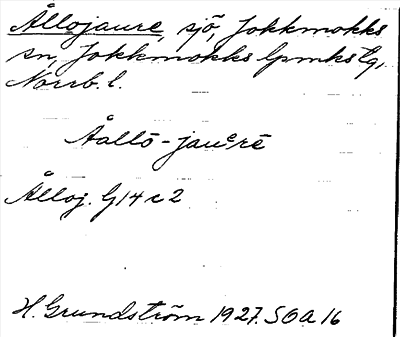 Ållojaure, sjö, Jokkmokks
sn, Jokkmokks lpmks tg,
Norrb. l.
Åallō-jauᵉrē
Ålloj. G14c2
H. Grundström 1927. SOA 16